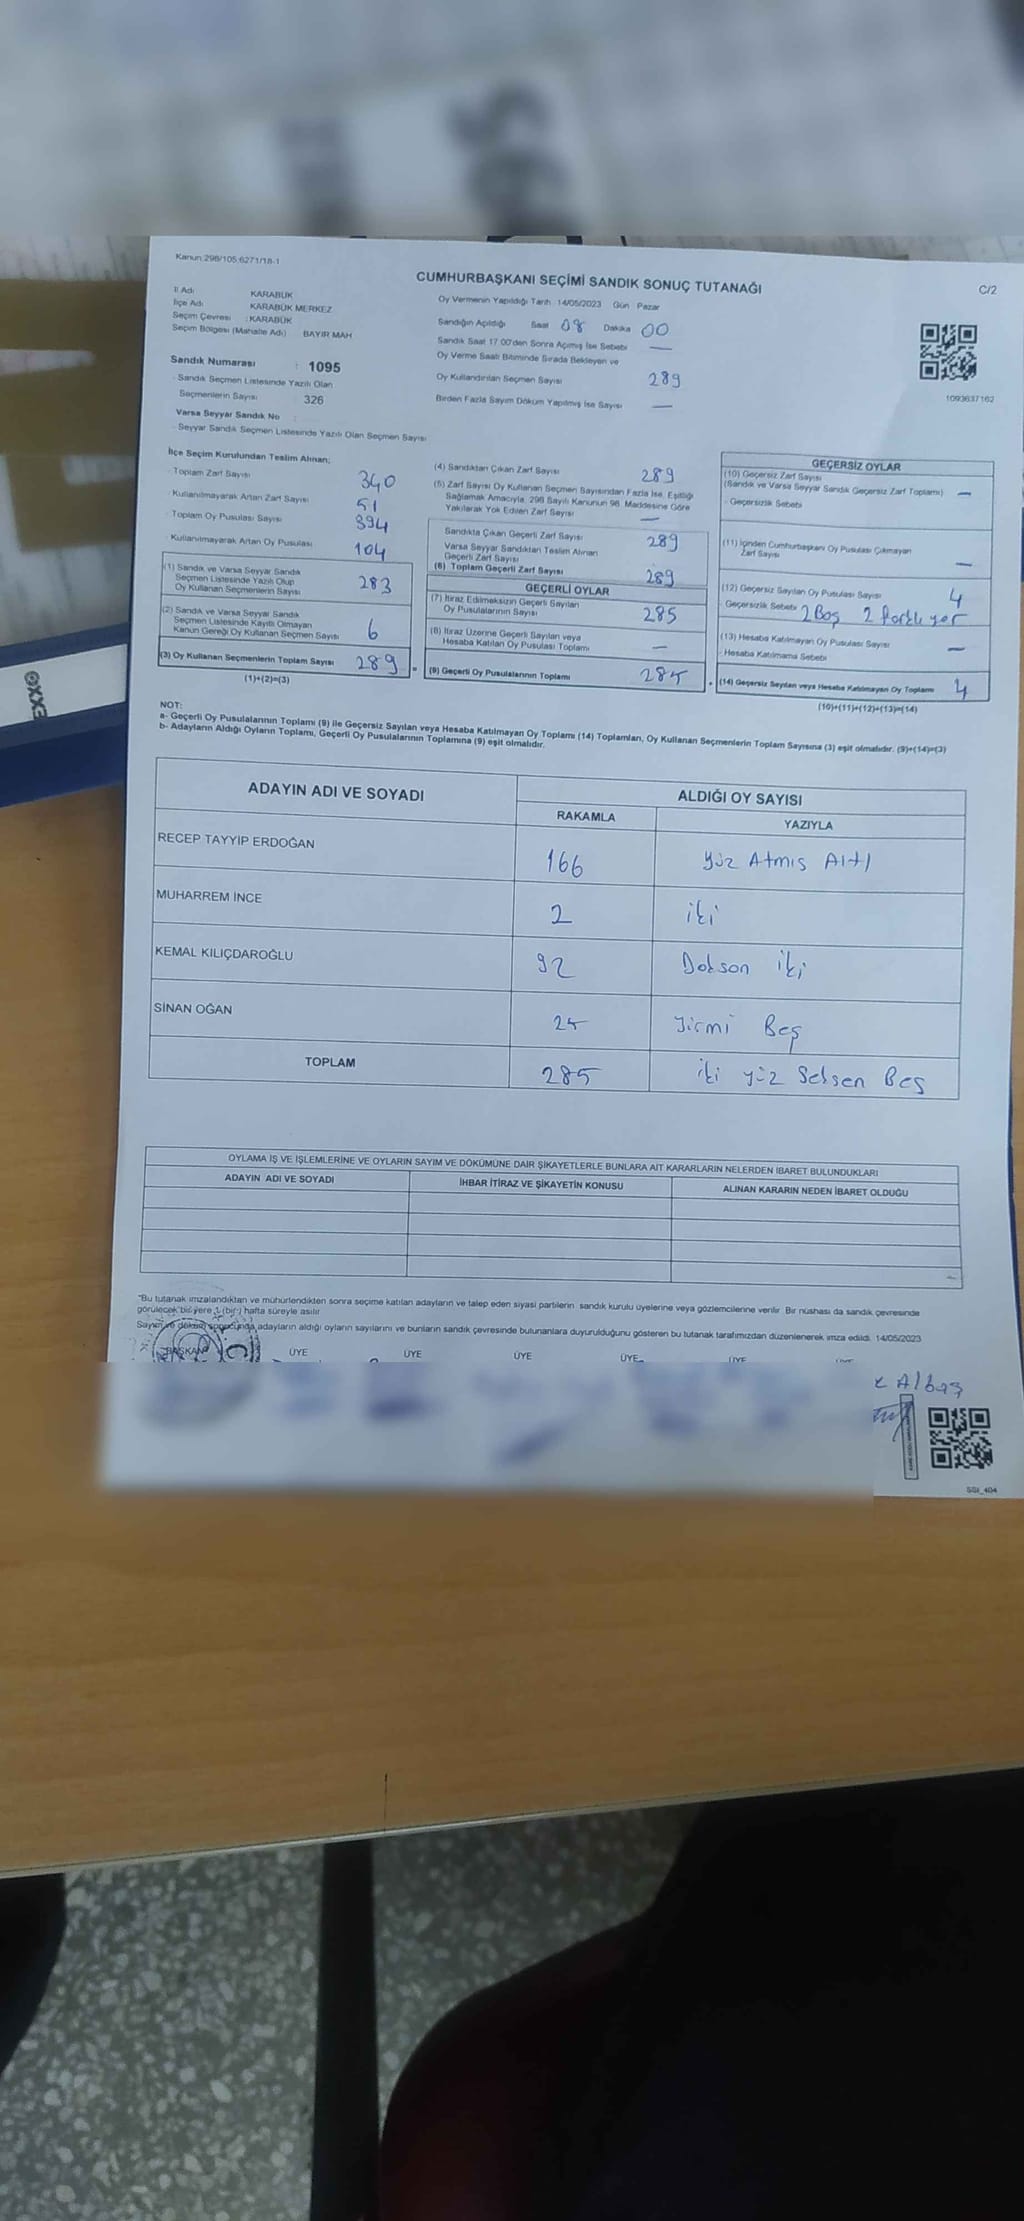 Kanun:298/105;6271/18-1
CUMHURBAŞKANI SEÇİMİ SANDIK SONUÇ TUTANAĞI
C/2
İl Adı KARABÜK
İlçe Adı KARABÜK MERKEZ
Seçim Çevresi : KARABÜK
Seçim Bölgesi (Mahalle Adı) BAYIR MAH
Sandık Numarası : 1095
Sandık Seçmen Listesinde Yazılı Olan
Seçmenlerin Sayısı : 326
Varsa Seyyar Sandık No
Seyyar Sandık Seçmen Listesinde Yazılı Olan Seçmen Sayısı
Oy Vermenin Yapıldığı Tarih 14/05/2023 Gün Pazar
Sandığın Açıldığı Saat 08 Dakika 00
Sandık Saat 17:00'den Sonra Açımış İse Sebebi —
Oy Verme Saati Bitiminde Sırada Bekleyen ve
Oy Kullandırılan Seçmen Sayısı 289
Birden Fazla Sayım Döküm Yapılmış İse Sayısı —
1093637162
İlçe Seçim Kurulundan Teslim Alınan;
Toplam Zarf Sayısı 340
Kullanılmayarak Artan Zarf Sayısı 51
Toplam Oy Pusulası Sayısı 394
Kullanılmayarak Artan Oy Pusulası 104
(1) Sandık ve Varsa Seyyar Sandık
Seçmen Listesinde Yazılı Olup
Oy Kullanan Seçmenlerin Sayısı 283
(2) Sandık ve Varsa Seyyar Sandık
Seçmen Listesinde Kayıtlı Olmayan
Kanun Gereği Oy Kullanan Seçmen Sayısı 6
(3) Oy Kullanan Seçmenlerin Toplam Sayısı 289 =
(1)+(2)=(3)
(4) Sandıktan Çıkan Zarf Sayısı 289
(5) Zarf Sayısı Oy Kullanan Seçmen Sayısından Fazla İse, Eşitliği
Sağlamak Amacıyla, 298 Sayılı Kanunun 98. Maddesine Göre
Yakılarak Yok Edilen Zarf Sayısı —
Sandıkta Çıkan Geçerli Zarf Sayısı 289
Varsa Seyyar Sandıktan Teslim Alınan
Geçerli Zarf Sayısı
(6) Toplam Geçerli Zarf Sayısı 289
GEÇERLİ OYLAR
(7) İtiraz Edilmeksizin Geçerli Sayılan
Oy Pusulalarının Sayısı 285
(8) İtiraz Üzerine Geçerli Sayılan veya
Hesaba Katılan Oy Pusulası Toplamı —
(9) Geçerli Oy Pusulalarının Toplamı 285 +
GEÇERSİZ OYLAR
(10) Geçersiz Zarf Sayısı
(Sandık ve Varsa Seyyar Sandık Geçersiz Zarf Toplamı) —
Geçersizlik Sebebi
(11) İçinden Cumhurbaşkanı Oy Pusulası Çıkmayan
Zarf Sayısı —
(12) Geçersiz Sayılan Oy Pusulası Sayısı 4
Geçersizlik Sebebi 2 Boş 2 farklı yer
(13) Hesaba Katılmayan Oy Pusulası Sayısı —
Hesaba Katılmama Sebebi
(14) Geçersiz Sayılan veya Hesaba Katılmayan Oy Toplamı 4
(10)+(11)+(12)+(13)=(14)
NOT:
a- Geçerli Oy Pusulalarının Toplamı (9) ile Geçersiz Sayılan veya Hesaba Katılmayan Oy Toplamı (14) Toplamları, Oy Kullanan Seçmenlerin Toplam Sayısına (3) eşit olmalıdır. (9)+(14)=(3)
b- Adayların Aldığı Oyların Toplamı, Geçerli Oy Pusulalarının Toplamına (9) eşit olmalıdır.
ADAYIN ADI VE SOYADI ALDIĞI OY SAYISI
RAKAMLA YAZIYLA
RECEP TAYYİP ERDOĞAN 166 Yüz Atmış Altı
MUHARREM İNCE 2 iki
KEMAL KILIÇDAROĞLU 92 Doksan iki
SİNAN OĞAN 25 Yirmi Beş
TOPLAM 285 iki yüz Seksen Beş
OYLAMA İŞ VE İŞLEMLERİNE VE OYLARIN SAYIM VE DÖKÜMÜNE DAİR ŞİKAYETLERLE BUNLARA AİT KARARLARIN NELERDEN İBARET BULUNDUKLARI
ADAYIN ADI VE SOYADI İHBAR İTİRAZ VE ŞİKAYETİN KONUSU ALINAN KARARIN NEDEN İBARET OLDUĞU
"Bu tutanak imzalandıktan ve mühürlendikten sonra seçime katılan adayların ve talep eden siyasi partilerin sandık kurulu üyelerine veya gözlemcilerine verilir. Bir nüshası da sandık çevresinde
görülecek bir yere 1 (bir) hafta süreyle asılır.
Sayım ve döküm sonucunda adayların aldığı oyların sayılarını ve bunların sandık çevresinde bulunanlara duyurulduğunu gösteren bu tutanak tarafımızdan düzenlenerek imza edildi. 14/05/2023
BAŞKAN ÜYE ÜYE ÜYE ÜYE ÜYE
Albaş
SSI_404
EXXO